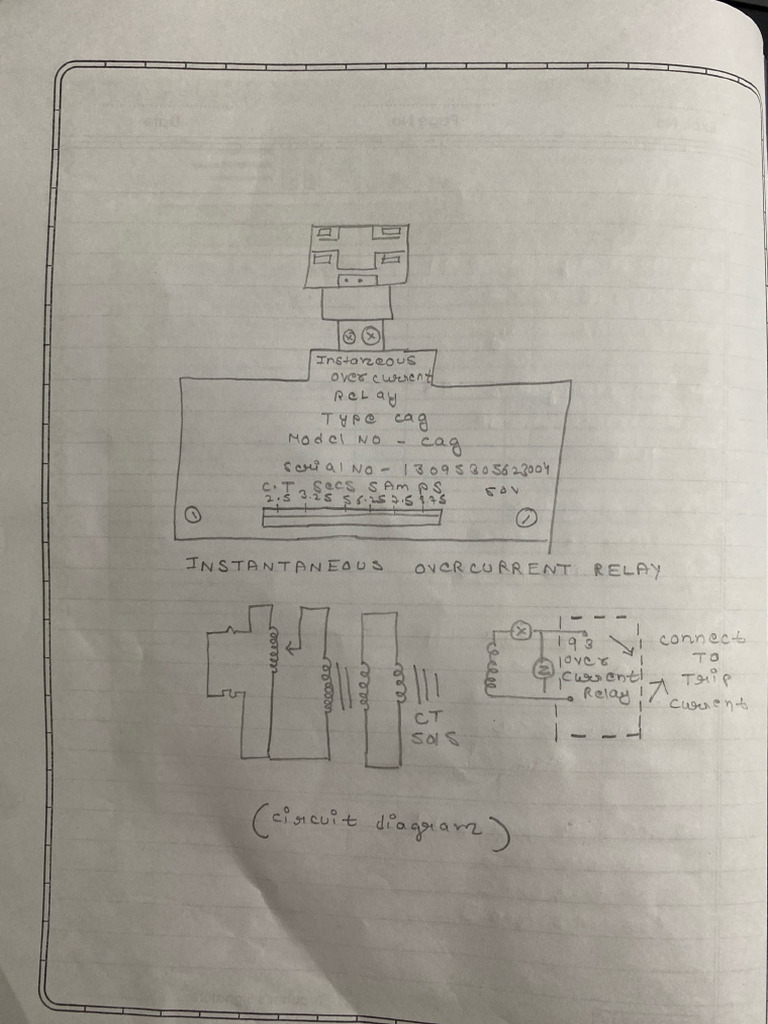 Instaneous
overcurrent
Relay
Type cag
Model NO - cag
Serial NO - 13095305623004
C.T Secs 5 Amps 50V
2.5 3.25 5 6.25 7.5
INSTANTANEOUS OVERCURRENT RELAY
193
over
current
Relay
connect
TO
Trip
current
CT
50/5
(circuit diagram)